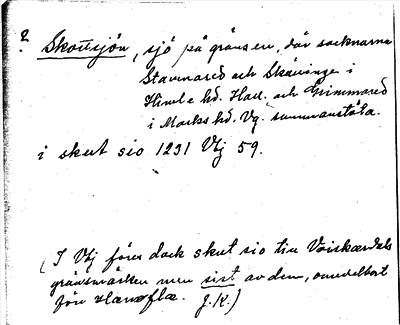 ? Skottsjön, sjö på gränsen, där socknarna
Stamnared och Skällinge i
Himle hd. Hall. och Grimmared
i Marks hd. Vg. sammanstöta.
i skut sio 1231 Vlj 59.
(I Vlj föres dock skut sio till Veiskærdals
gränsmärken men sist av dem, omedelbart
för J.K.)